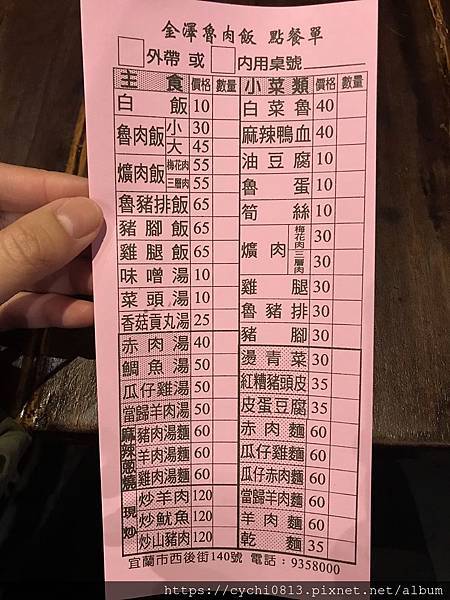 金澤魯肉飯 點餐單
外帶 或 内用桌號
主食 價格 數量 小菜類 價格 數量
白飯 10 白菜魯 40
魯肉飯 小 30 麻辣鴨血 40
大 45 油豆腐 10
爌肉飯 梅花肉 55 魯蛋 10
三層肉 55 筍絲 10
魯豬排飯 65 爌肉 梅花肉 30
豬腳飯 65 三層肉 30
雞腿飯 65 雞腿 30
味噌湯 10 魯豬排 30
菜頭湯 10 豬腳 30
香菇貢丸湯 25 燙青菜 30
赤肉湯 40 紅糟豬頭皮 35
鯛魚湯 50 皮蛋豆腐 35
瓜仔雞湯 50 赤肉麵 60
當歸羊肉湯 50 瓜仔雞麵 60
麻辣 豬肉湯麵 60 瓜仔赤肉麵 60
羊肉湯麵 60 當歸羊肉麵 60
燒 雞肉湯麵 60 羊肉麵 60
現炒 炒羊肉 120 乾麵 35
炒魷魚 120
炒山豬肉 120
宜蘭市西後街140號 電話：9358000
https://cychi0813.pixnet.net/album